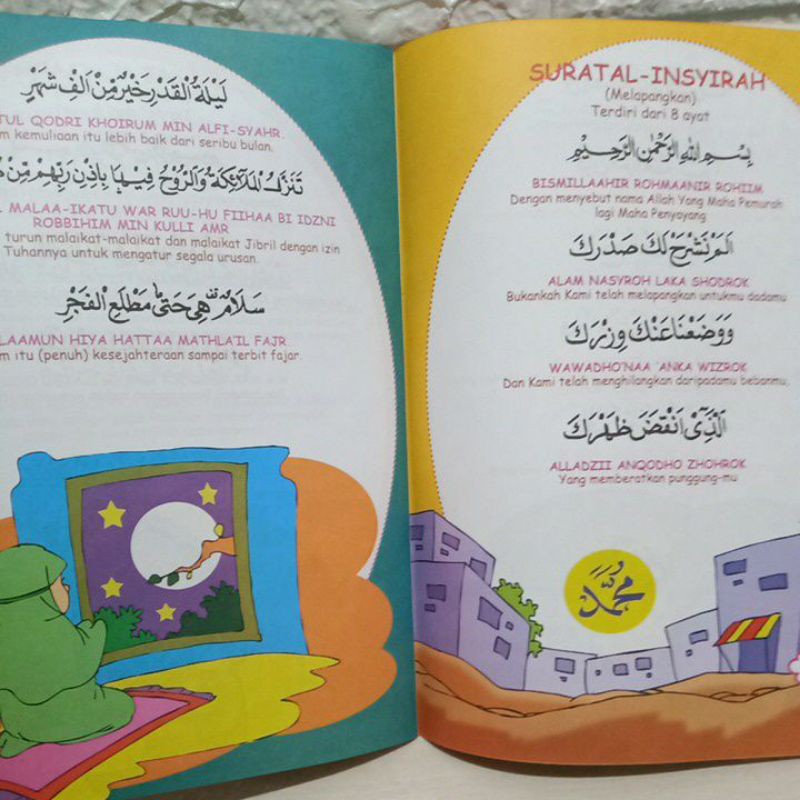 لَيْلَةُ الْقَدْرِ خَيْرٌ مِنْ اَلْفِ شَهْرٍ
TUL QODRI KHOIRUM MIN ALFI-SYAHR.
m kemuliaan itu lebih baik dari seribu bulan.
تَنَزَّلُ الْمَلَآئِكَةُ وَالرُّوْحُ فِيْهَا بِاِذْنِ رَبِّهِمْ مِنْ
MALAA-IKATU WAR RUU-HU FIIHAA BI IDZNI
ROBBIHIM MIN KULLI AMR
turun malaikat-malaikat dan malaikat Jibril dengan izin
Tuhannya untuk mengatur segala urusan.
سَلَامٌ هِيَ حَتّٰى مَطْلَعِ الْفَجْرِ
LAAMUN HIYA HATTAA MATHLA'IL FAJR.
m itu (penuh) kesejahteraan sampai terbit fajar.
SURATAL-INSYIRAH
(Melapangkan)
Terdiri dari 8 ayat
بِسْمِ اللهِ الرَّحْمٰنِ الرَّحِيْمِ
BISMILLAAHIR ROHMAANIR ROHIIM
Dengan menyebut nama Allah Yang Maha Pemurah
lagi Maha Penyayang
اَلَمْ نَشْرَحْ لَكَ صَدْرَكَ
ALAM NASYROH LAKA SHODROK
Bukankah Kami telah melapangkan untukmu dadamu
وَوَضَعْنَا عَنْكَ وِزْرَكَ
WAWADHO'NAA 'ANKA WIZROK
Dan Kami telah menghilangkan daripadamu bebanmu,
الَّذِيْٓ اَنْقَضَ ظَهْرَكَ
ALLADZII ANQODHO ZHOHROK
Yang memberatkan punggung-mu
محمد